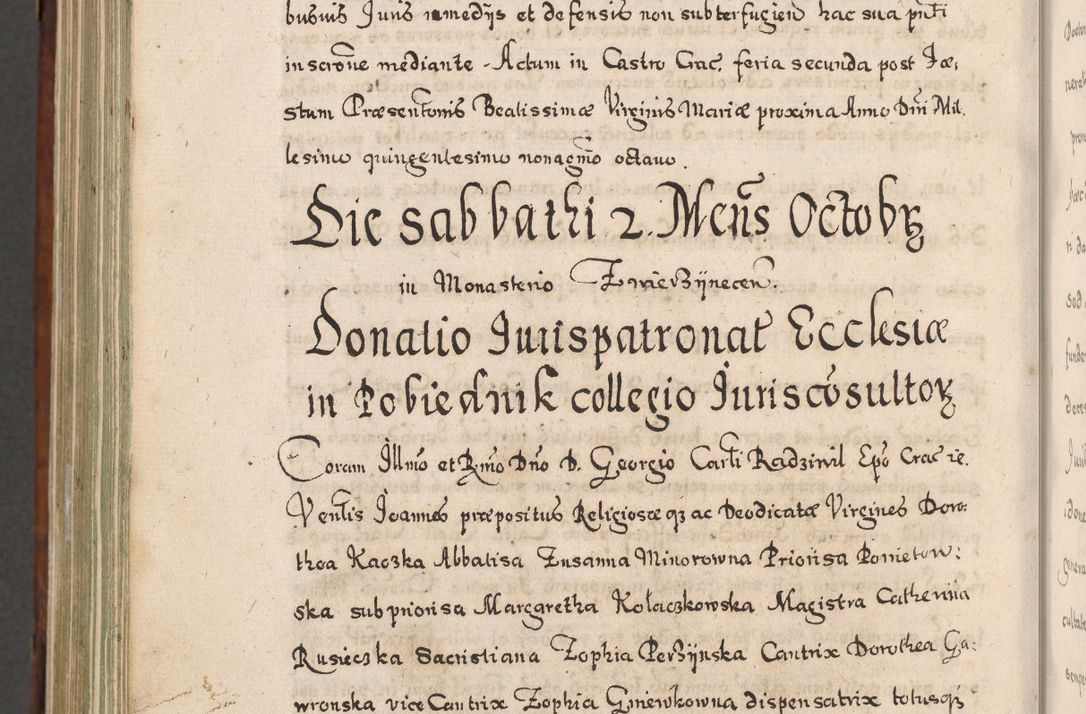 busuis Juris remedijs et defensis non subterfugien hac sua pñti
inscrone mediante. Actum in Castro Crac. feria secunda post Fæ,
stum Præsentonis Beatissimæ Virginis Mariæ proxima Anno Dni Mil
lesimo quingentesimo nonagmo octavo.
Die sabbathi 2. Mens Octobꝝ
in Monasterio Zwierzijnecen.
Donatio Iurispatronat Ecclesiæ
in Pobiednik collegio Jurisco͂sultoꝝ
Coram Illmo et Rmo Dno D. Georgio Carli Radziwil Epo Crac ie.
Venlis Joannes præpositus Religiosæ qꝫ ac Deodicatæ Virgines Doro:
thea Kaczka Abbatisa Zusanna Minorowna Priorisa Ponietow:
ska subpriorisa Margaretha Kolaczkowska Magistra Catherina
Rusieczka Sacristiana Zophia Perzijnska Cantrix Dorothea Ga:
wronska vice Cantrix Zophia Gniewkowna dispensatrix totusqꝫ